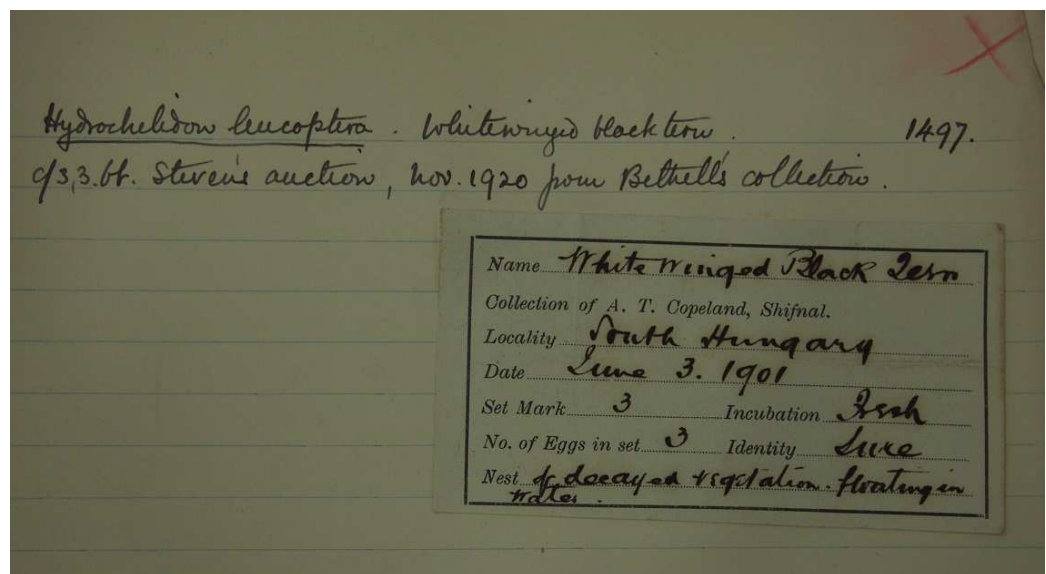 Hydrochelidon leucoptera. Whitewinged black tern. 1497.
c/3, 3. bt. Stevens auction, Nov. 1920 from Bethell's collection.
Name White Winged Black Tern
Collection of A. T. Copeland, Shifnal.
Locality South Hungary
Date June 3. 1901
Set Mark 3 Incubation Fresh
No. of Eggs in set 3 Identity Sure
Nest of decayed vegetation. floating in
water.